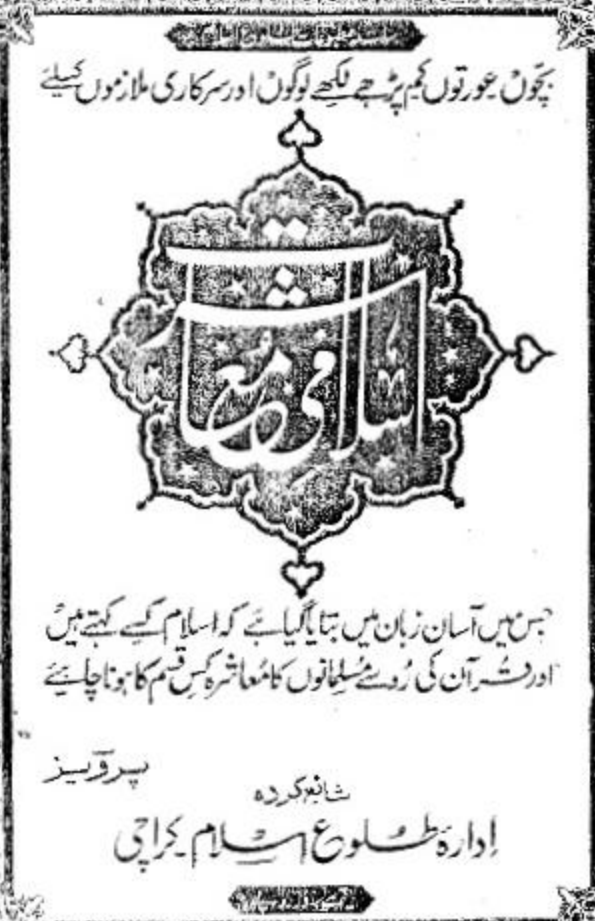 بچّوں عورتوں کم پڑھے لکھے لوگوں اور سرکاری ملازموں کیلئے
اسلامی معاشرت
جس میں آسان زبان میں بتایا گیا ہے کہ اسلام کسے کہتے ہیں
اور قرآن کی رُو سے مُسلمانوں کا مُعاشرہ کس قسم کا ہونا چاہیئے
پرویز
شائع کردہ
اِدارۂ طلوعِ اسلام کراچی